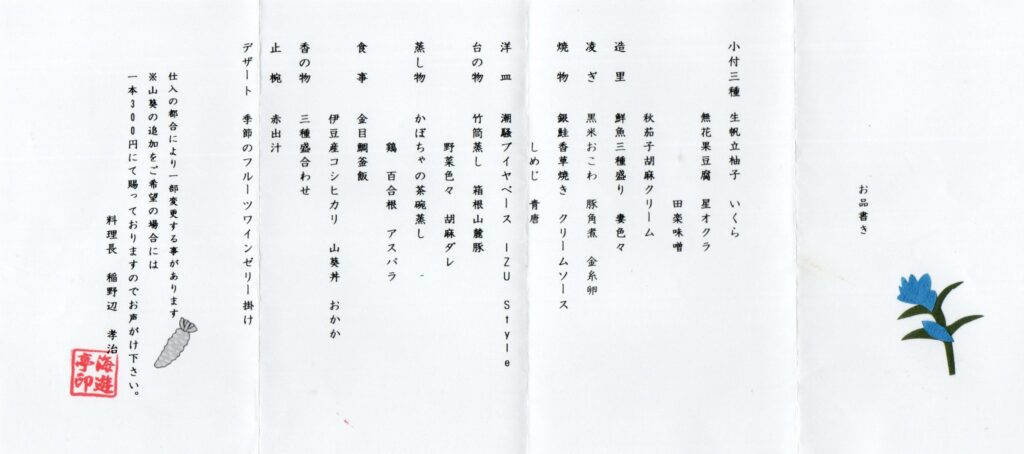 お品書き
小付三種　生帆立柚子　いくら
無花果豆腐　星オクラ
田楽味噌
秋茄子胡麻クリーム
造里　鮮魚三種盛り　妻色々
凌ぎ　黒米おこわ　豚角煮　金糸卵
焼物　銀鮭香草焼き　クリームソース
しめじ　青唐
洋皿　潮騒ブイヤベース　IZU Style
台の物　竹筒蒸し　箱根山麓豚
野菜色々　胡麻ダレ
蒸し物　かぼちゃの茶碗蒸し
鶏　百合根　アスパラ
食事　金目鯛釜飯
伊豆産コシヒカリ　山葵丼　おかか
香の物　三種盛合わせ
止椀　赤出汁
デザート　季節のフルーツワインゼリー掛け
仕入の都合により一部変更する事があります
※山葵の追加をご希望の場合には
一本300円にて賜っておりますのでお声がけ下さい。
料理長　稲野辺　孝治
海遊亭印